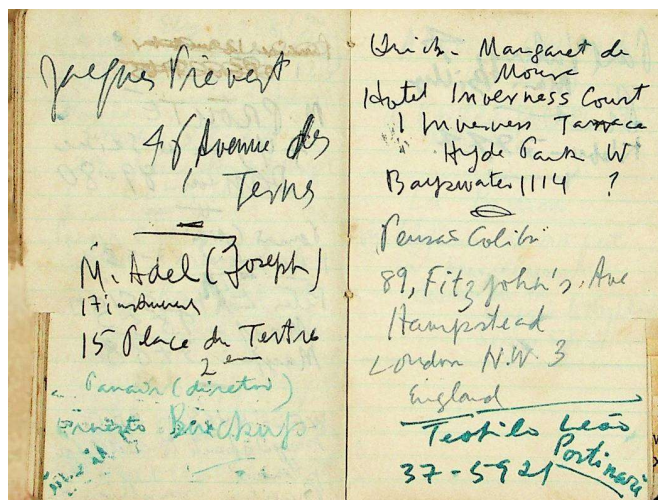 Jacques Prévert
46 Avenue des
Ternes
M. Adel (Joseph)
17 instruments
15 Place du Tertre
2 eme
Panair (diretor)
Ernesto
Margaret de
Moura
Hotel Inverness Court
1 Inverness Terrace
Hyde Park W
Bayswater 1114 ?
89, Fitzjohn's Ave
Hampstead
London N.W. 3
England
Teotilo Leão
Portinari
37-5921